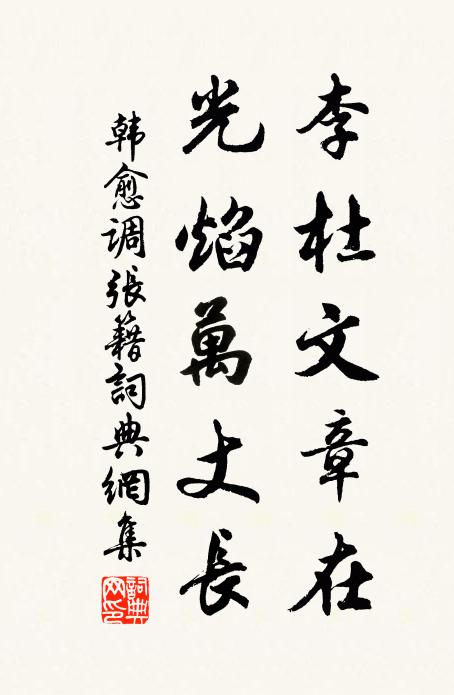 李杜文章在
光焰萬丈長
韓愈调張籍詞典網集
詞典網印